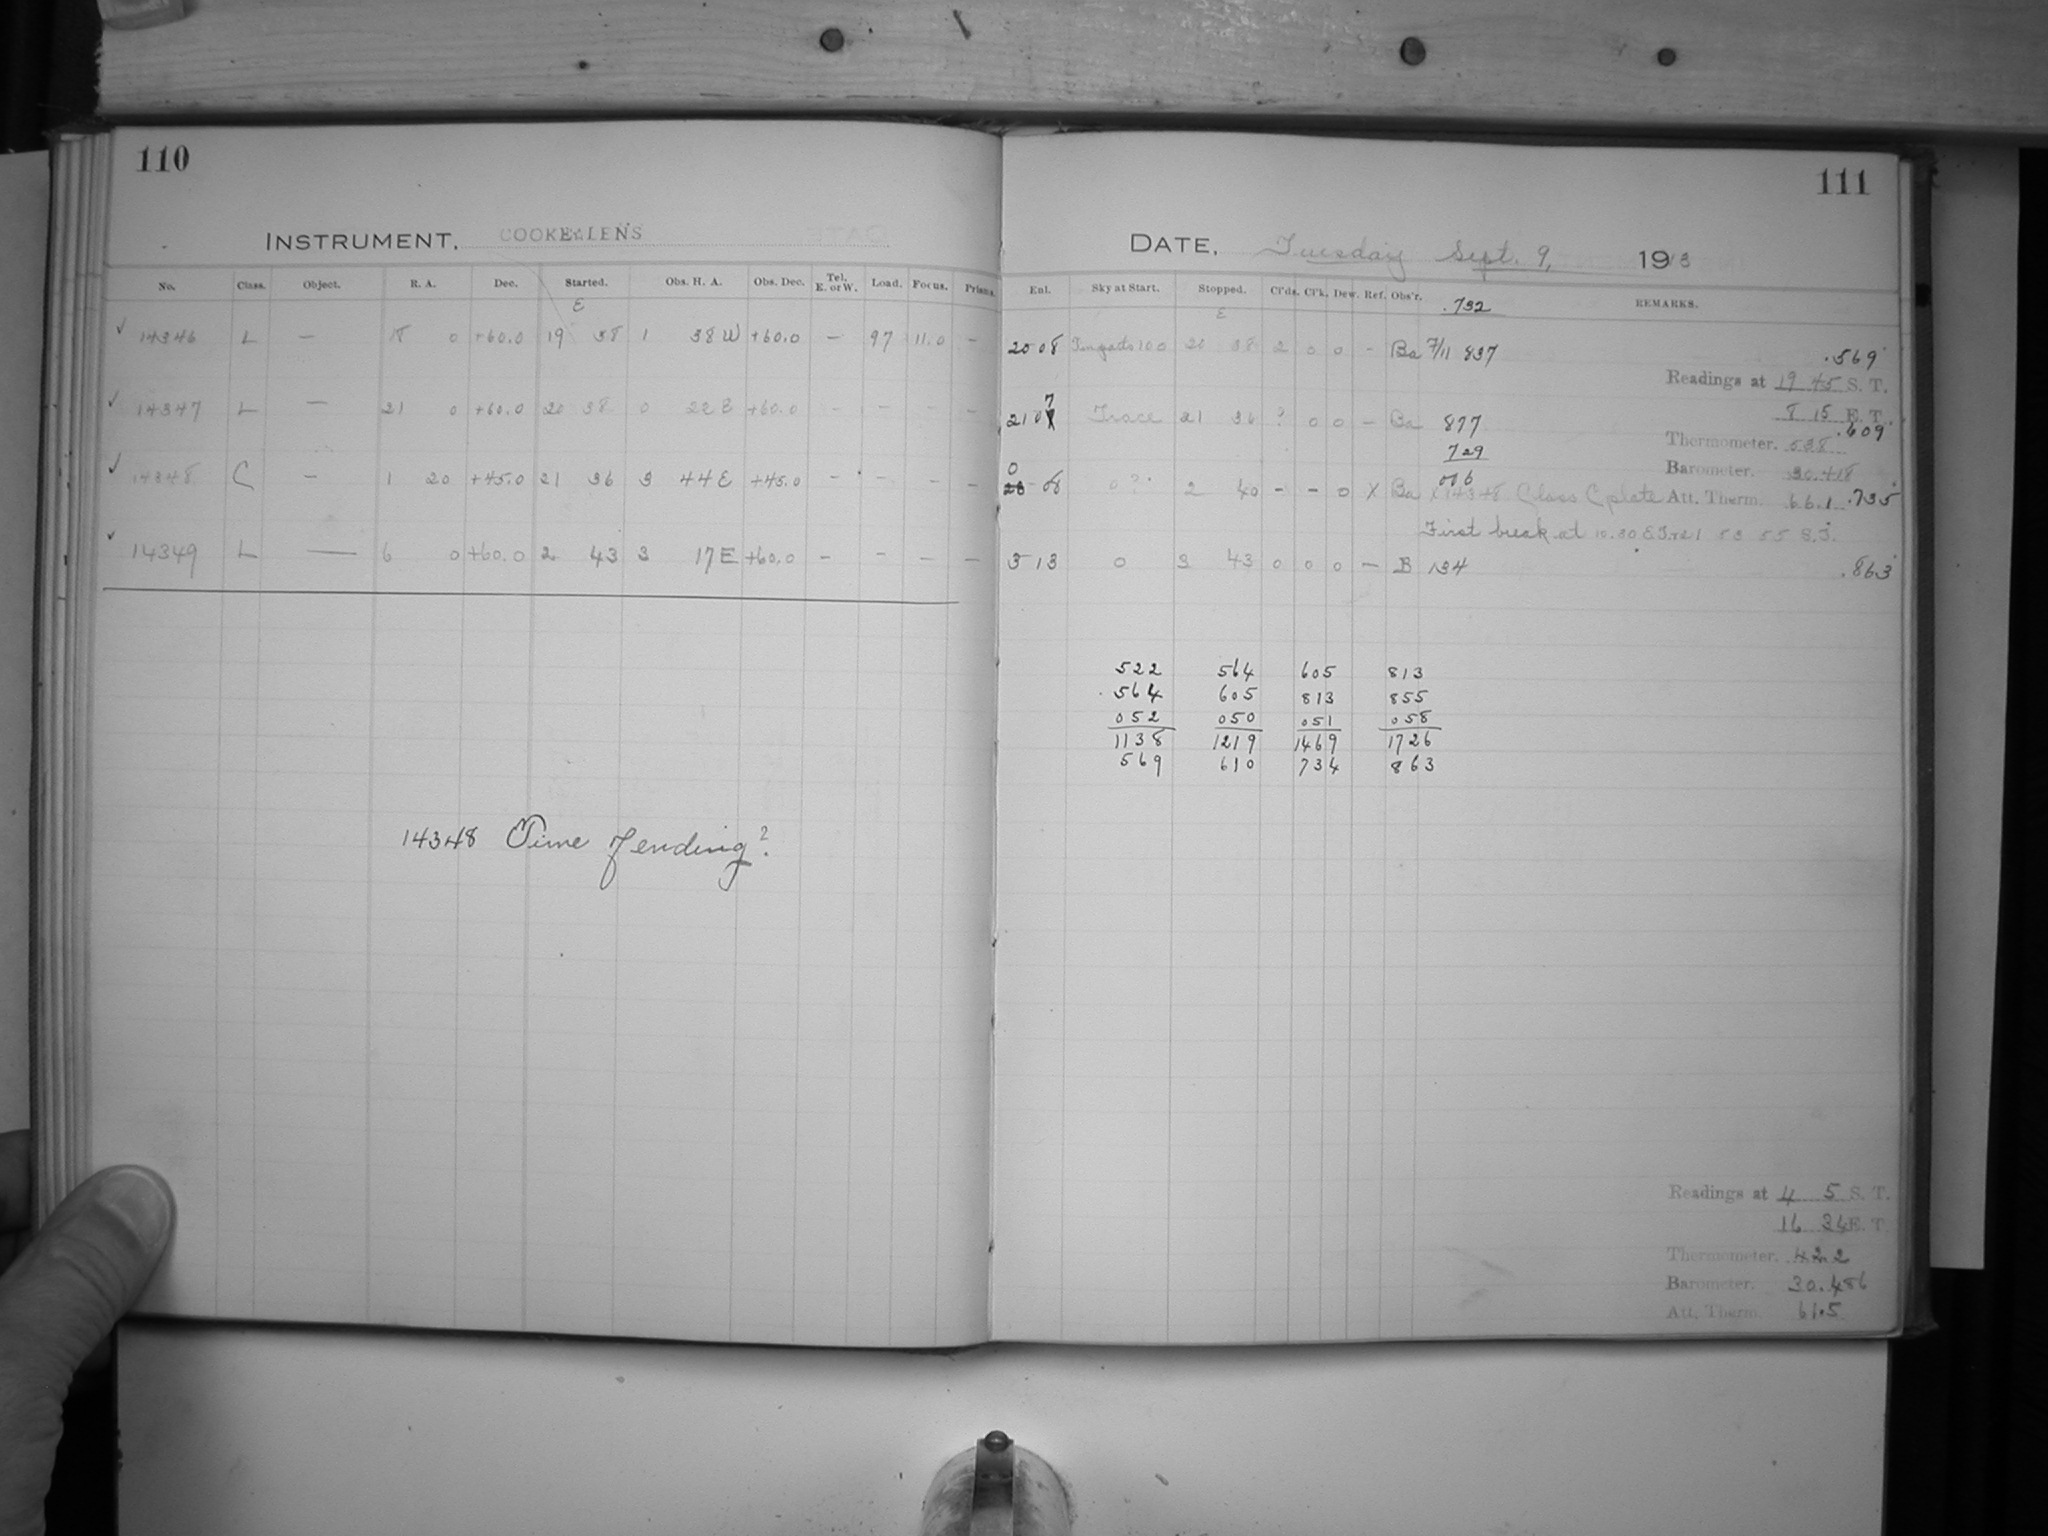 110
INSTRUMENT. COOKE LENS
No. Class. Object. R. A. Dec. Started. Obs. H. A. Obs. Dec. Tel. E. or W. Load. Focus. Prisms.
E
✓ 14346 L — 18 0 +60.0 19 38 1 38 W +60.0 — 97 11.0 —
✓ 14347 L — 21 0 +60.0 20 38 0 22 E +60.0 — — — —
✓ 14348 C — 1 20 +45.0 21 36 3 44 E +45.0 — — — —
✓ 14349 L — 6 0 +60.0 2 43 3 17 E +60.0 — — — —
14348 Time of ending?
111
DATE. Tuesday Sept. 9, 1913
Eal. Sky at Start. Stopped. Cl'ds. Cl'k. Dew. Ref. Obs'r. .732 REMARKS.
E
20 08 20 38 2 0 0 - Ba 7/11 837 .569
Readings at 19 45 S. T.
7
21 0 Trace 21 36 ? 0 0 - Ba 877
8 15 E. T.
.609
729
Thermometer. 538
Barometer. 30.418
0
08 0? 2 40 - - 0 X Ba 006
x 14348 Class C plate Att. Therm. 66.1 .735
First break at 10.30 E.T. 21 53 55 S.T.
3 13 0 3 43 0 0 0 — B 134 .863
522 564 605 813
564 605 813 855
052 050 051 058
1138 1219 1469 1726
569 610 734 863
Readings at 4 5 S. T.
16 34 E. T.
Thermometer. 422
Barometer. 30.486
Att. Therm. 61.5